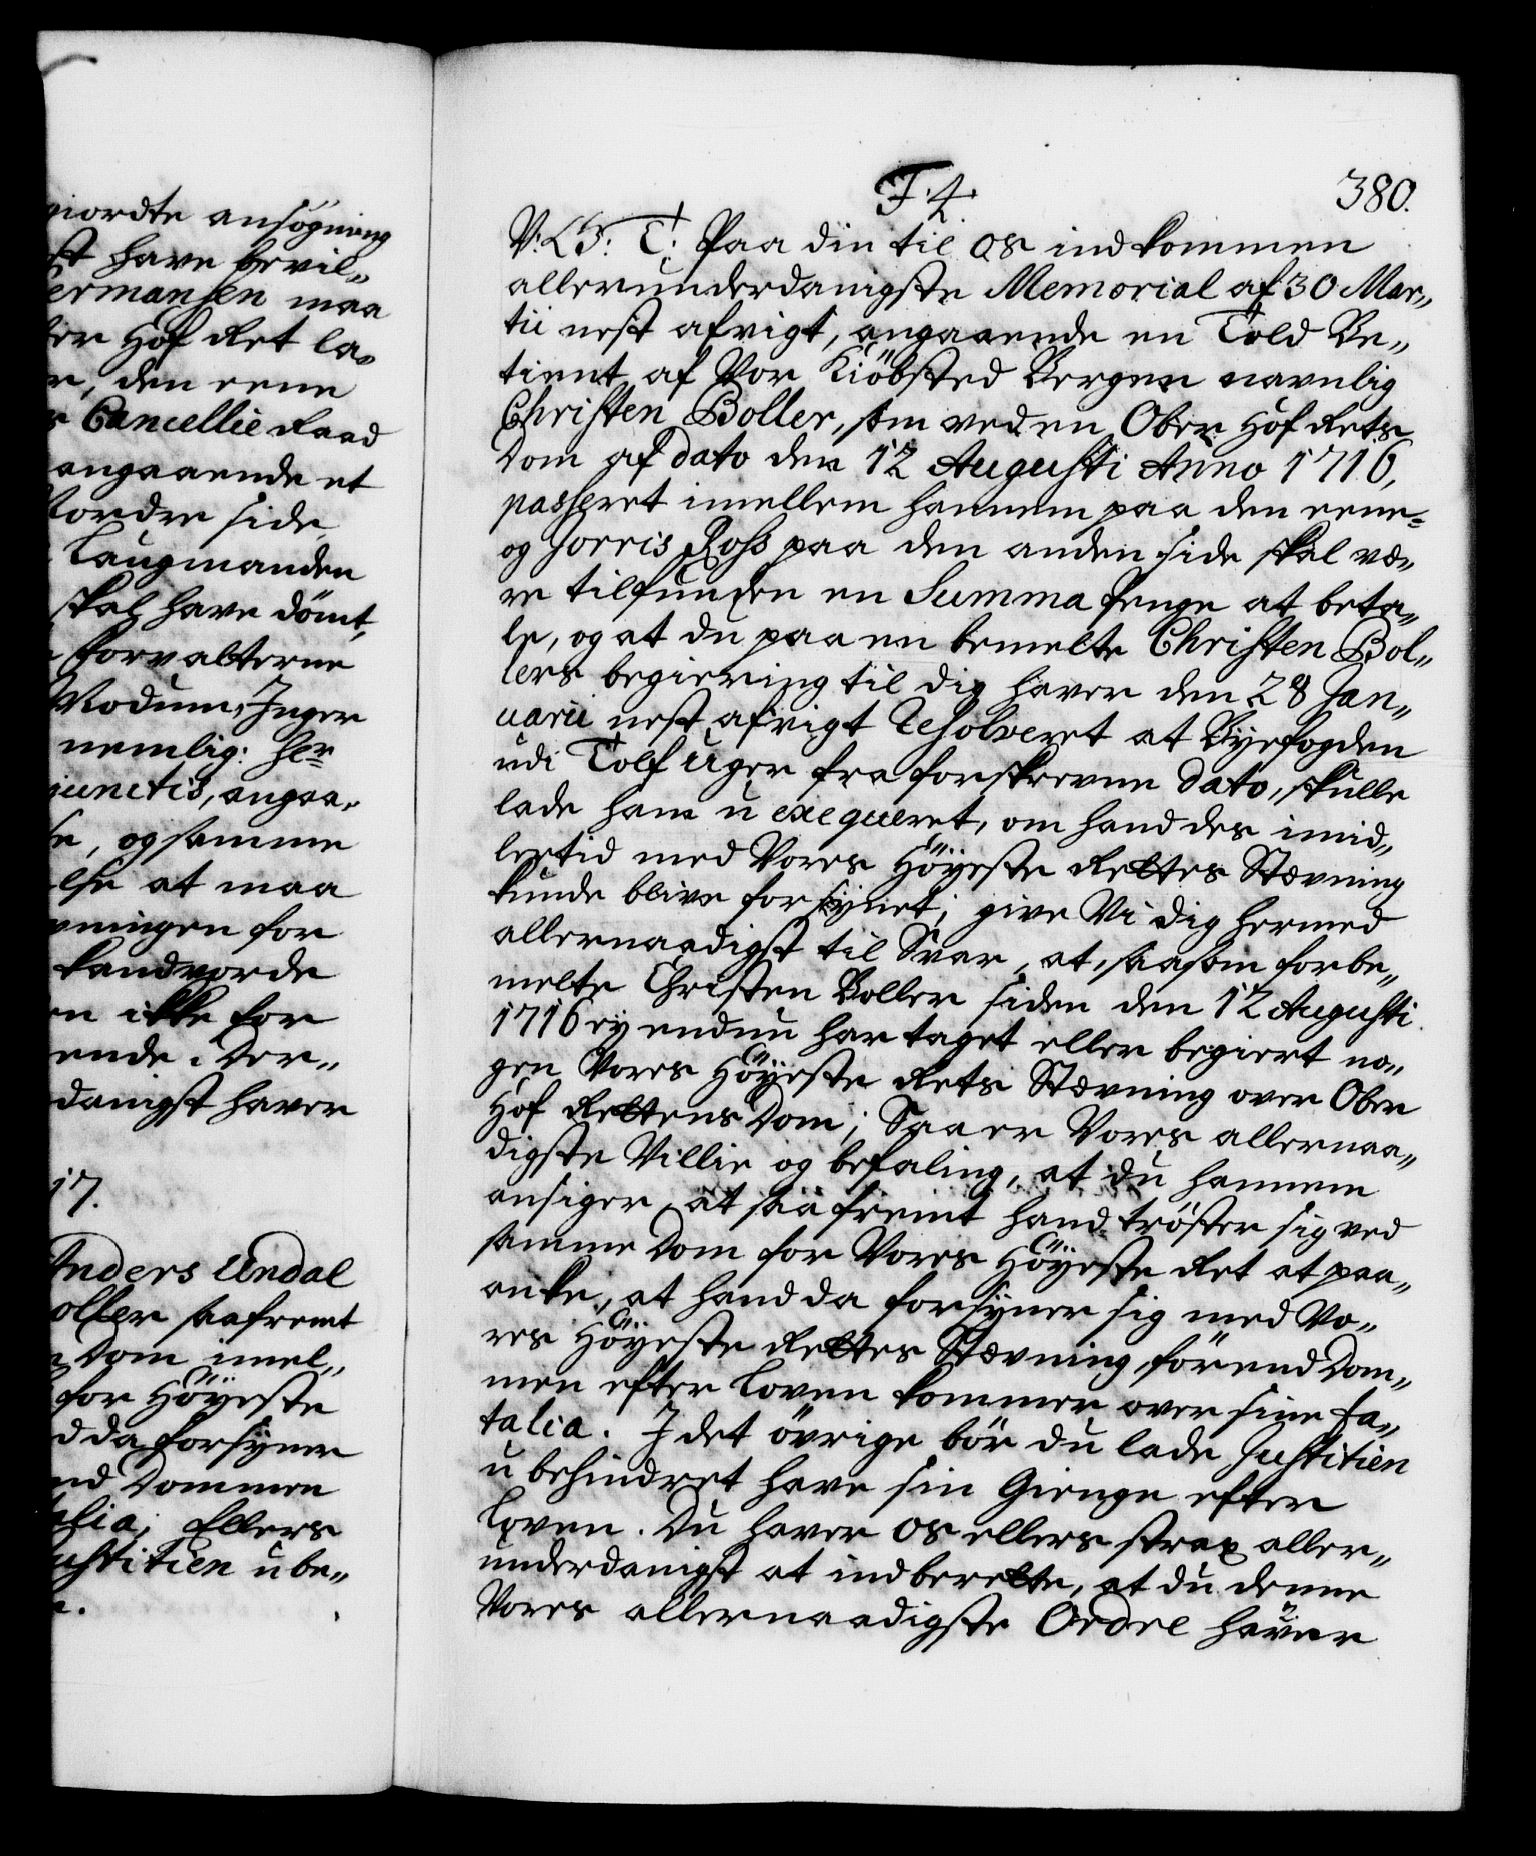 giordte ansøgning
st have bevil„
ermansen maa
ter Hof Ret la„
n, den eene
r Cancellie Raad
angaaende et
Nordre side,
Laugmanden
skal have dömt,
forvalterne
Modum, Inger
nemlig: her
junctis, angaa„
se, og samme
else at maa
vningen for
kand vorde
en ikke for
ende. Der„
danigst haver
17.
Anders Undal
oller saafremt
n Dom imel„
for Höyeste
d da forsyner
nd Dommen
talia; Ellers
Justitien ube„
e.
F. 4. 380.
V. G. T. Paa din til os indkommen
allerunderdanigste Memorial af 30 Mar„
tii nest afvigt, angaaende en Told Be„
tient af Vor Kiöbsted Bergen navnlig
Christen Boller, som ved en Ober Hof Rets
Dom af dato den 12 Augusti Anno 1716,
passeret imellem hannem paa den eene„
og Jorris Ross paa den anden side skal væ„
re tilfunden en Summa penge at beta„
le, og at du paa en bemelte Christen Bol„
lers begiering til dig haver den 28 Jan„
uarii nest afvigt Resolveret at Byefogden
udi Tolf Uger fra forskrevne dato, skulle
lade ham u exequeret, om hand des imid„
lertid med Vores Höyeste Rettes Stævning
kunde blive forsynet; give Vi dig hermed
allernaadigst til Svar, at, saasom forbe„
melte Christen Boller siden den 12 Augusti
1716 ey endnu har taget eller begiert no„
gen Vores Höyeste Rets Stævning over Ober
Hof Rettens Dom; Saa er Vores allernaa„
digste Villie og befaling, at du hannem
ansiger, at saafremt hand tröster sig ved
samme Dom for Vores Höyeste Ret at paa„
anke, at hand da forsyner sig med Vo„
res Höyeste Rettes Stævning, förend Dom„
men efter Loven kommer over sine fa„
talia. I det övrige bör du lade Justitien
u behindret have sin Gienge efter
Loven. Du haver os ellers strax aller„
underdanigst at indberette, at du denne
Vores allernaadigste Ordre haver